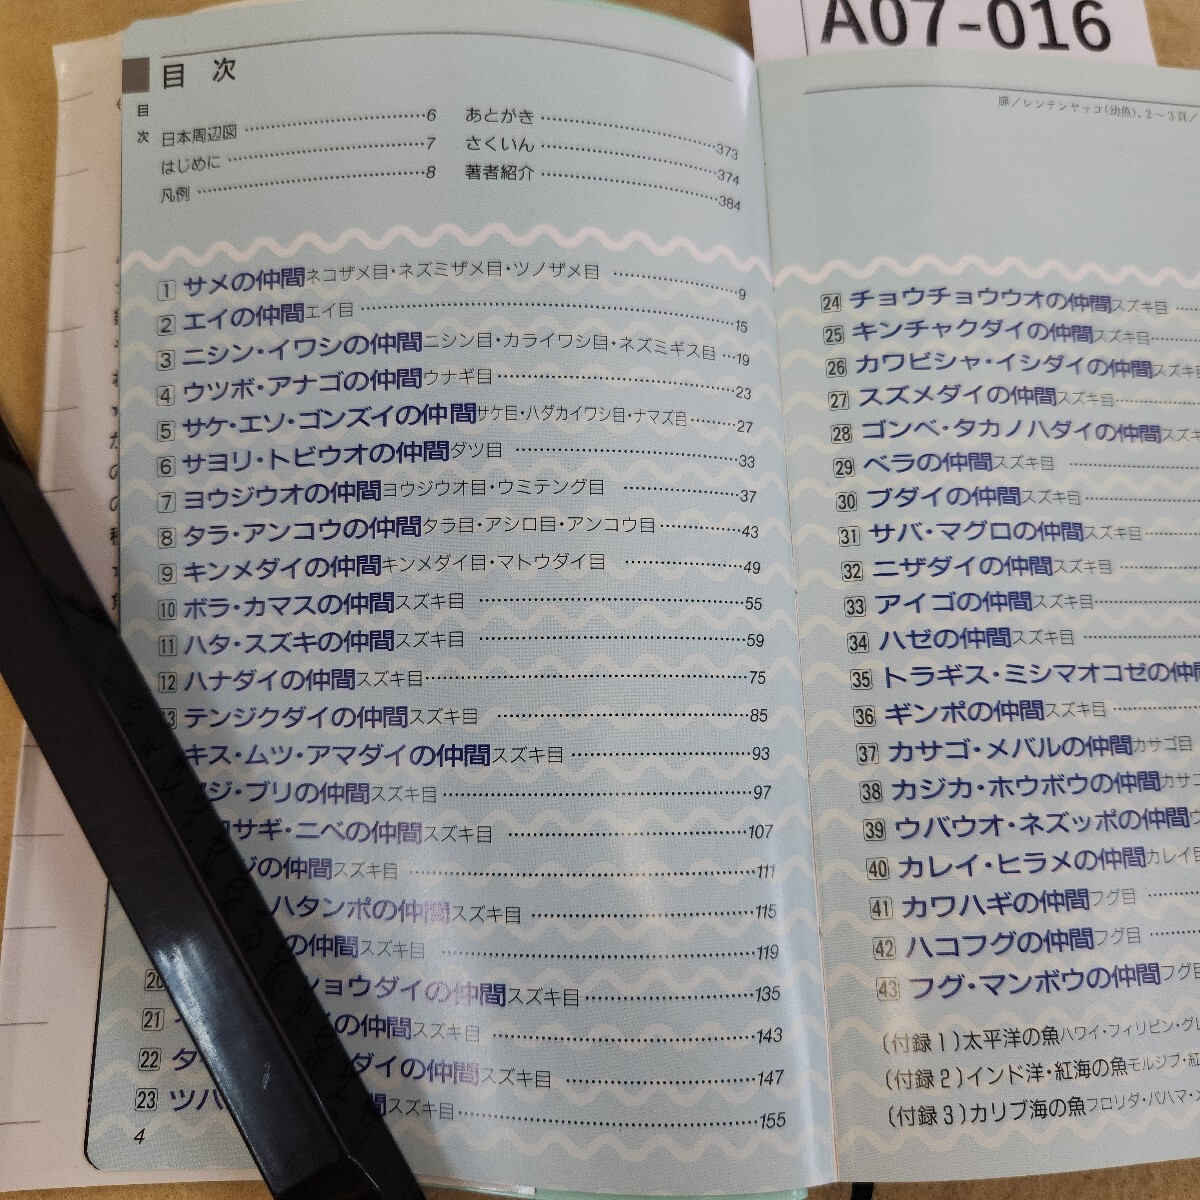 A07-016
目 次
目次
日本周辺図 6
はじめに 7
凡例 8
あとがき 373
さくいん 374
著者紹介 384
1 サメの仲間 ネコザメ目・ネズミザメ目・ツノザメ目 9
2 エイの仲間 エイ目 15
3 ニシン・イワシの仲間 ニシン目・カライワシ目・ネズミギス目 19
4 ウツボ・アナゴの仲間 ウナギ目 23
5 サケ・エソ・ゴンズイの仲間 サケ目・ハダカイワシ目・ナマズ目 27
6 サヨリ・トビウオの仲間 ダツ目 33
7 ヨウジウオの仲間 ヨウジウオ目・ウミテング目 37
8 タラ・アンコウの仲間 タラ目・アシロ目・アンコウ目 43
9 キンメダイの仲間 キンメダイ目・マトウダイ目 49
10 ボラ・カマスの仲間 スズキ目 55
11 ハタ・スズキの仲間 スズキ目 59
12 ハナダイの仲間 スズキ目 75
13 テンジクダイの仲間 スズキ目 85
キス・ムツ・アマダイの仲間 スズキ目 93
ジ・ブリの仲間 スズキ目 97
サギ・ニベの仲間 スズキ目 107
の仲間 スズキ目 111
ハタンポの仲間 スズキ目 115
の仲間 スズキ目 119
20 ョウダイの仲間 スズキ目 135
21 の仲間 スズキ目 143
22 タ ダイの仲間 スズキ目 147
23 ツバ 間 スズキ目 155
4
扉/レンテンヤッコ(幼魚).2〜3頁/
24 チョウチョウウオの仲間 スズキ目
25 キンチャクダイの仲間 スズキ目
26 カワビシャ・イシダイの仲間 スズキ目
27 スズメダイの仲間 スズキ目
28 ゴンベ・タカノハダイの仲間 スズキ
29 ベラの仲間 スズキ目
30 ブダイの仲間 スズキ目
31 サバ・マグロの仲間 スズキ目
32 ニザダイの仲間 スズキ目
33 アイゴの仲間 スズキ目
34 ハゼの仲間 スズキ目
35 トラギス・ミシマオコゼの仲間
36 ギンポの仲間 スズキ目
37 カサゴ・メバルの仲間 カサゴ目
38 カジカ・ホウボウの仲間 カサゴ
39 ウバウオ・ネズッポの仲間
40 カレイ・ヒラメの仲間 カレイ目
41 カワハギの仲間 フグ目
42 ハコフグの仲間 フグ目
43 フグ・マンボウの仲間 フグ目
(付録1)太平洋の魚 ハワイ・フィリピン・グ
(付録2)インド洋・紅海の魚 モルジブ・紅
(付録3)カリブ海の魚 フロリダ・バハマ・